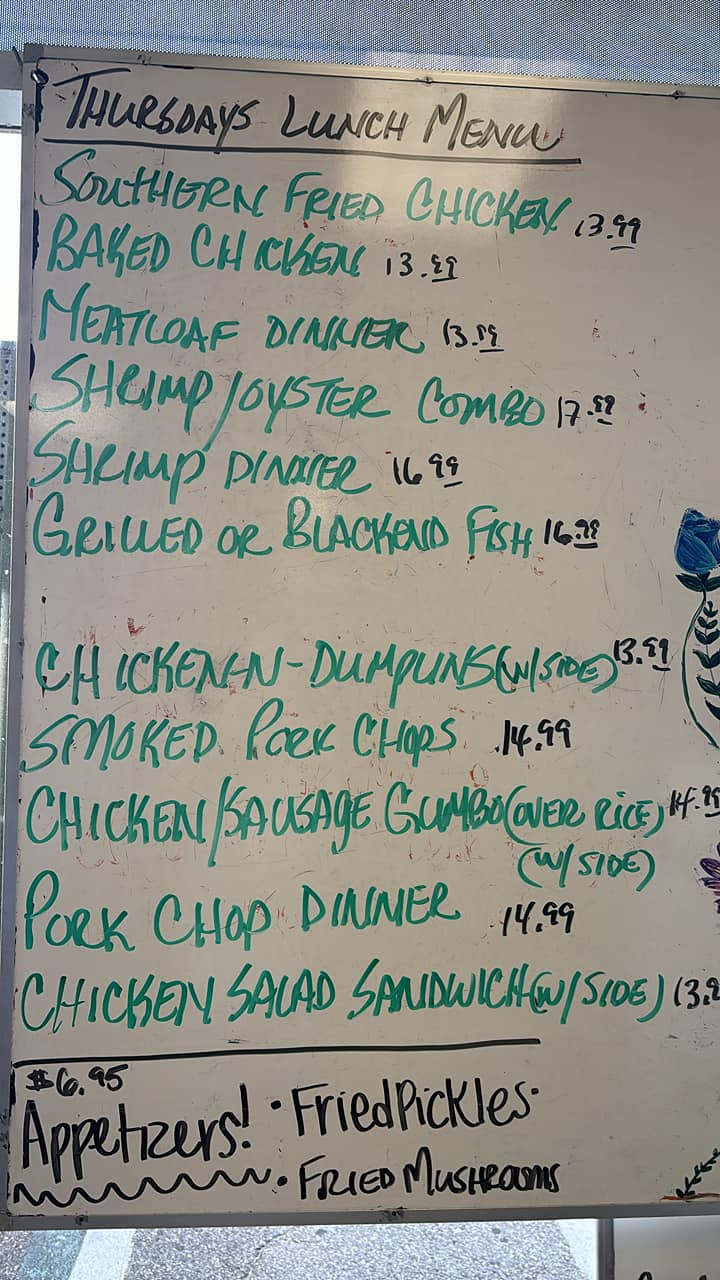 THURSDAYS LUNCH MENU
SOUTHERN FRIED CHICKEN 13.99
BAKED CHICKEN 13.99
MEATLOAF DINNER 13.99
SHRIMP/OYSTER COMBO 17.99
SHRIMP DINNER 16.99
GRILLED OR BLACKEND FISH 16.99
CHICKEN-N-DUMPLINS (W/SIDE) 13.99
SMOKED PORK CHOPS 14.99
CHICKEN/SAUSAGE GUMBO (OVER RICE) 14.99
(W/ SIDE)
PORK CHOP DINNER 14.99
CHICKEN SALAD SANDWICH (W/SIDE)
$6.95
Appetizers! • Fried Pickles •
• FRIED MUSHROOMS